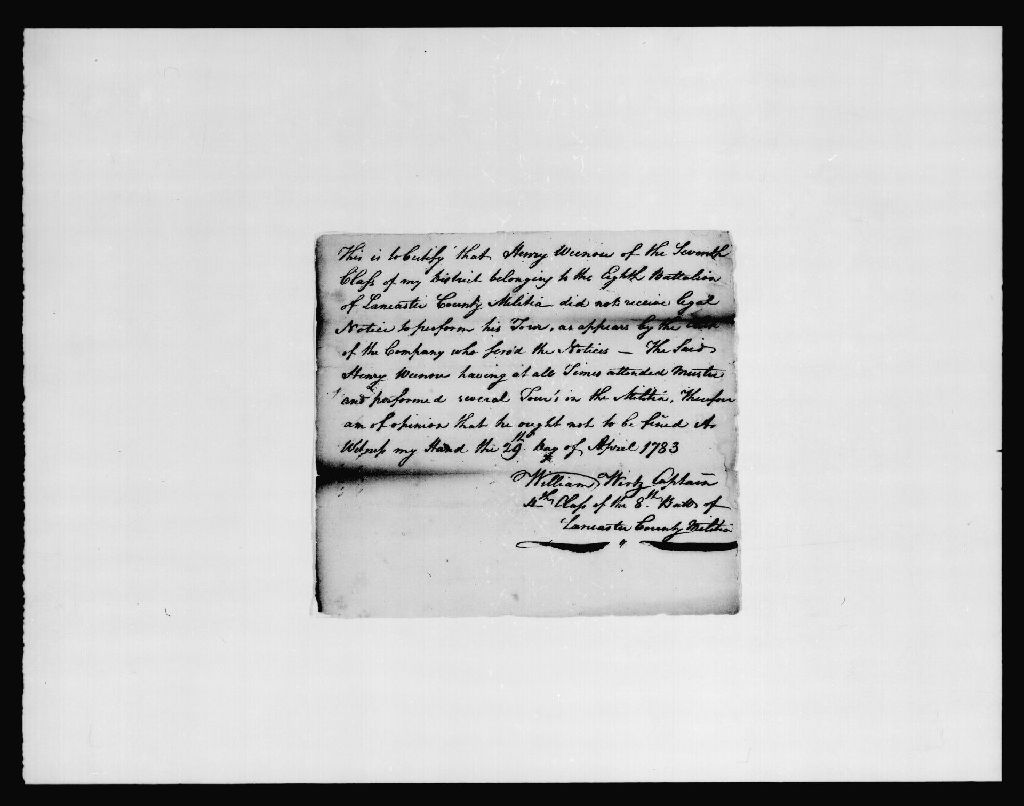 This is to Certify that Henry Weenow of the Seventh
Class of my District belonging to the Eighth Battalion
of Lancaster County Militia did not receive legal
Notice to perform his Tour, as appears by the
of the Company who serv'd the Notices — The Said
Henry Weenow having at all Times attended Muster
and performed several Tour's in the Militia, Therefore
am of opinion that he ought not to be fined As
Witness my Hand the 29th Day of April 1783
William Wirtz Captain
4th Class of the 8th Batt of
Lancaster County Militia